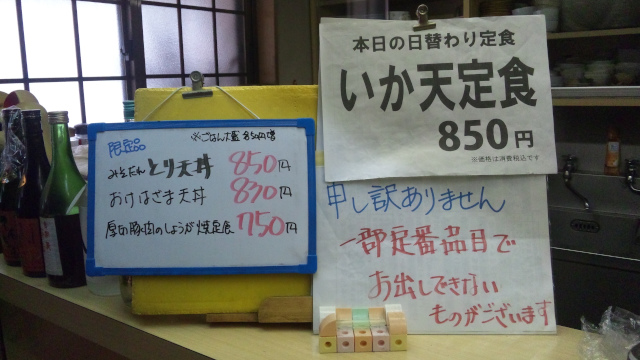 限定品
※ごはん大盛 50円増
みそだれとり天丼 850円
おけはざま天丼 830円
厚切豚肉のしょうが焼定食 750円
本日の日替わり定食
いか天定食
850円
※価格は消費税込です
申し訳ありません
一部定番品目で
お出しできない
ものがございます